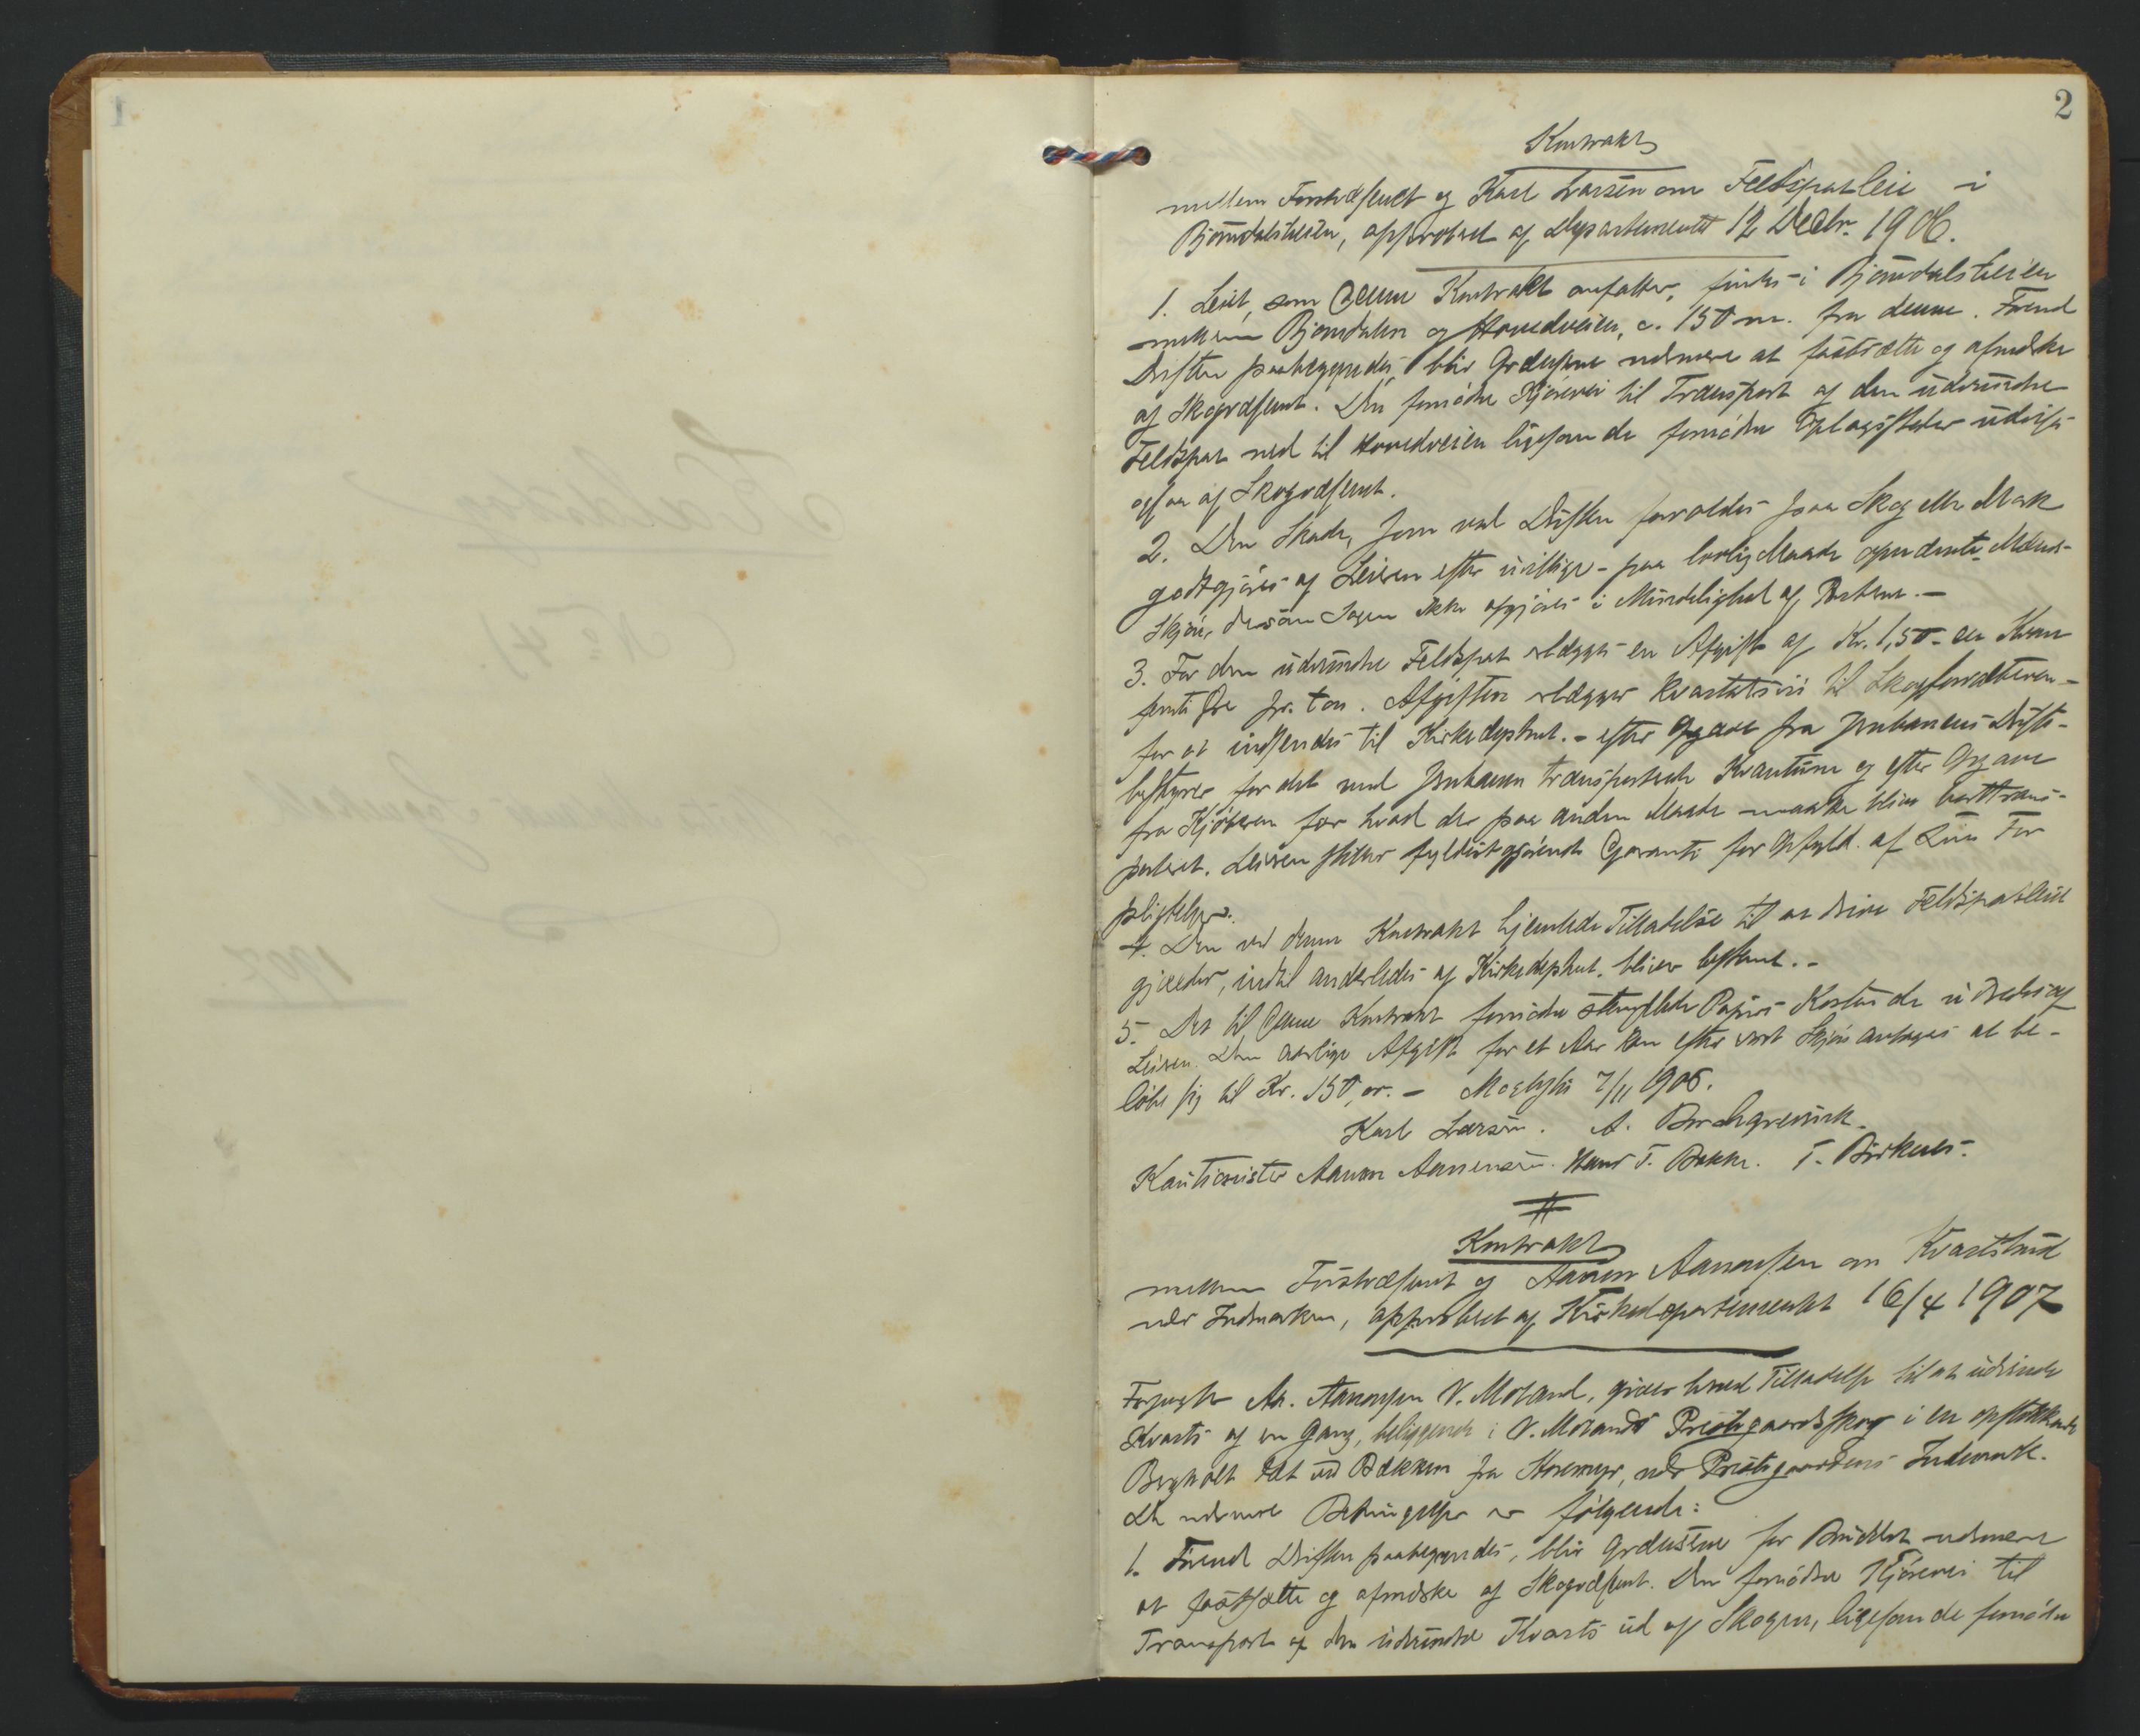 1
2
Kontrakt
mellem Forstvæsenet og Karl Larsen om Feltspatleie i
Bjorndalsteien, approberet af Departementet 12 Decbr. 1906.
1. Leiet, som denne Kontrakt omfatter, findes i Bjorndalsteien
mellem Bjorndalen og Hovedveien, c. 150 m. fra denne. Førend
Driften paabegyndes, blir Grændserne nærmere at fastsætte og afmerke
af Skogvæsenet. Den fornødne Kjørevei til Transport af den udvundne
Feldspat ned til Hovedveien ligesom de fornødne Oplagssteder udvises
ogsaa af Skogvæsenet.
2. Den Skade, som ved Driften forvoldes paa Skog eller Mark
godtgjøres af Leieren efter uvillige paa lovlig Maade opnævnte Mænds
Skjøn, dersom Sagen ikke afgjøres i Mindelighed af Parterne. -
3. For den udvundne Feldspat erlægges en Afgift af Kr. 1,50 - en Krone
femti Øre pr. ton. Afgiften erlægges kvartalsvis til Skogforvalteren -
for at indsendes til Kirkedeptmt. - efter Opgave fra Jernbanens Drifts-
bestyrer for det med Jernbanen transporterede Kvantum og efter Opgave
fra Kjøberen for hvad der paa anden Maade maatte blive borttrans-
porteret. Leieren stiller fyldestgjørende Garanti for Opfyld. af sine For
pligtelser.
4. Den ved denne Kontrakt hjemlede Tilladelse til at drive Feldspatleiet
gjælder, indtil anderledes af Kirkedeptmt. bliver bestemt. -
5. Det til denne Kontrakt fornødne stemplede Papirs Kostende udredes af
Leieren. Den aarlige Afgift for et Aar kan efter vort Skjøn antages at be-
løbe sig til Kr. 150, or. - 7/11 1906.
Karl Larsen. A.
Kautionister Aanon Aanensen. Hans T. Bakke. T. Birkenes.
Kontrakt
mellem Forstvæsenet og Aanon Aanonsen om Kvartsbrud
ved Indmarken, approberet af Kirkedepartementet 16/4 1907
Aa. Aanonsen V. Moland, gives herved Tilladelse til at udvinde
Kvarts af en Gang, beliggende i V. Molands Præstegaardsskog i en
tæt ved Bækken fra ved Præstegaardens Indmark.
De nærmere Betingelser er følgende:
1. Førend Driften paabegyndes, blir Grændserne for Bruddet nærmere
at fastsætte og afmerke af Skogvæsenet. Den fornødne Kjørevei til
Transport af den udvundne Kvarts ud af Skogen, ligesom de fornødne